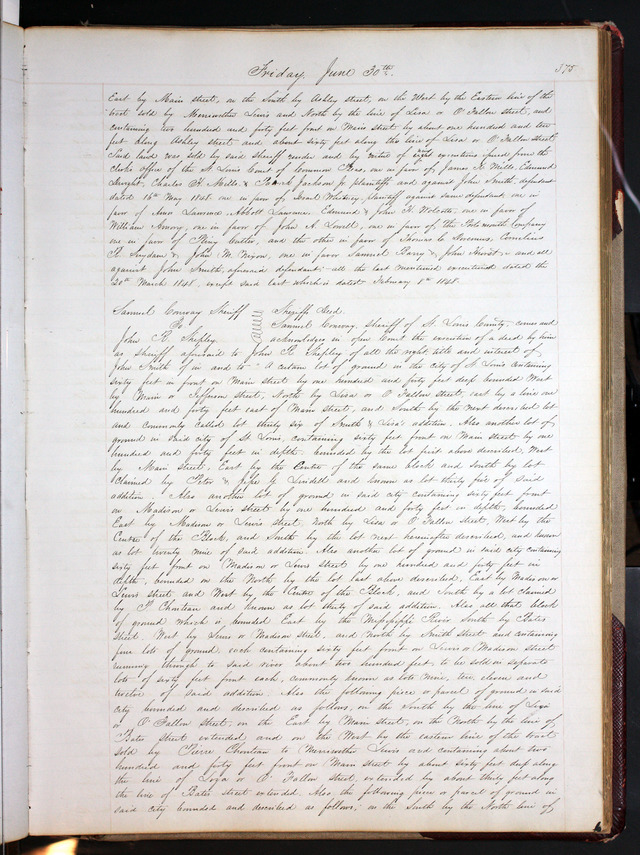 Friday, June 30th. 375
East by Main street, on the South by Ashley street, on the West by the Eastern line of the
tract sold by Merriwether Lewis and North by the line of Lisa or O'Fallon street, and
containing two hundred and forty feet front on Main street by about one hundred and two
feet along Ashley street and about sixty feet along this line of Lisa or O'Fallon street.
Said land was sold by said Sheriff under and by virtue of eight executions issued from the
clerks office of the St. Louis Court of Common Pleas, one in favor of James R. Mills, Edmund
Wright, Charles H. Mills & Jackson Jr. plaintiffs and against John Smith, defendant
dated 16th May 1848. one in favor of Israel Whitney, plaintiff against same defendant, one in
favor of Amos Lawrence, Abbott Lawrence, Edmund & John H. Wolcott, one in favor of
William Amory, one in favor of John A. Lowell, one in favor of the Falmouth Company
one in favor of Pliny Cutler, and the other in favor of Thomas C. Cornelius
R. Suydam & John M. Nixon, one in favor Samuel Barry & John Hurst and all
against John Smith, aforesaid defendant: all the last mentioned executions dated the
20th March 1848. except said last which is dated February 1st 1848.
Samuel Conway Sheriff Sheriff's Deed
To Samuel Conway, sheriff of St. Louis County, comes and
John R. Shepley. acknowledges in open Court the execution of a deed by him
as sheriff aforesaid to John R. Shepley of all the right, title and interest of
John Smith of in and to: A certain lot of ground in the city of St. Louis containing
sixty feet in front on Main street by one hundred and forty feet deep bounded West
by Main or Jefferson street, North by Lisa or O'Fallon street, east by a line one
hundred and forty feet east of Main street, and South by the next described lot
and commonly called lot thirty six of Smith & Lisa's addition. Also another lot of
ground in said city of St Louis, containing sixty feet front on Main street by one
hundred and forty feet in depth. bounded by the lot first above described, West
by Main street, East by the Centre of the same block and South by lot
claimed by Peter & Jesse G. Lindell and known as lot thirty five of said
addition. Also another lot of ground in said city containing sixty feet front
on Madison or Lewis street by one hundred and forty feet in depth, bounded
East by Madison or Lewis street, North by Lisa or O'Fallon street, West by the
Centre of the Block, and South by the lot next hereinafter described, and known
as lot twenty nine of said addition. Also another lot of ground in said city containing
sixty feet front on Madison or Lewis street by one hundred and forty feet in
depth, bounded on the North by the lot last above described, East by Madison or
Lewis street and West by the Centre of the Block, and South by a lot claimed
by P. Chouteau and known as lot thirty of said addition. Also all that block
of ground which is, bounded East by the Mississippi River South by Bates
street. West by Lewis or Madison street, and north by Smith street and containing
four lots of ground, each containing sixty feet front on Lewis or Madison street
running through to said river about two hundred feet, to be sold in separate
lots of sixty feet front each, commonly known as lots nine, ten, eleven and
twelve of said addition. Also the following piece or parcel of ground in said
city bounded and described as follows, on the South by the line of Lisa
or O'Fallon street, on the East by Main street, on the North by the line of
Bates street extended and on the West by the eastern line of the tract
sold by Pierre Chouteau to Merriwether Lewis and containing about two
hundred and forty feet front on Main street by about sixty feet deep along
the line of Lisa or O'Fallon street, extended by about thirty feet along
the line of Bates street extended. Also, the following piece or parcel of ground in
said city bounded and described as follows; on the South by the North line of